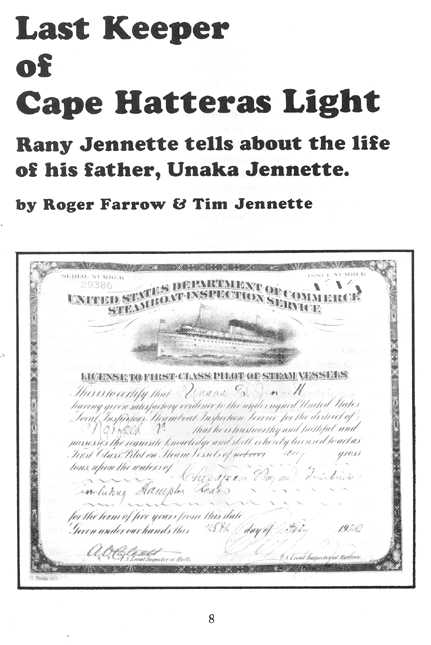 Last Keeper
of
Cape Hatteras Light
Rany Jennette tells about the life
of his father, Unaka Jennette.
by Roger Farrow & Tim Jennette
SERIAL NUMBER
29386
UNITED STATES DEPARTMENT OF COMMERCE
STEAMBOAT-INSPECTION SERVICE
LICENSE TO FIRST-CLASS PILOT OF STEAM VESSELS
This is to certify that
having given satisfactory evidence to the undersigned United States
Local Inspectors, Steamboat Inspection Service for the district of
that he is trustworthy and faithful and
possesses the requisite knowledge and skill is hereby licensed to act as
First Class Pilot on Steam Vessels of not over gross
tons, upon the waters of
including Hampton Roads
for the term of five years from this date
Given under our hands this day of 19
8